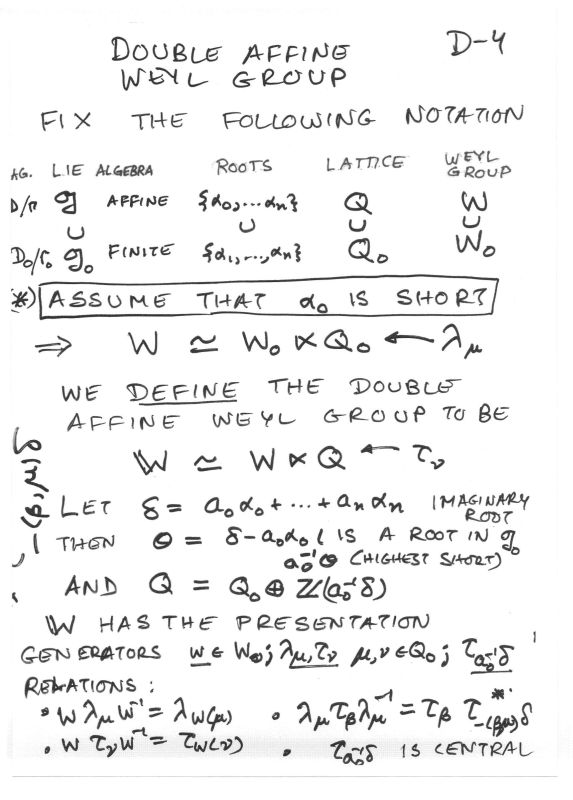 D-4
DOUBLE AFFINE
WEYL GROUP
FIX THE FOLLOWING NOTATION
AG. LIE ALGEBRA ROOTS LATTICE WEYL GROUP
D/Γ g AFFINE {α₀,...αₙ} Q W
∪ ∪ ∪ ∪
D₀/Γ₀ g₀ FINITE {α₁,...,αₙ} Q₀ W₀
*) ASSUME THAT α₀ IS SHORT
⇒ W ≃ W₀ ⋉ Q₀ ← λ_μ
WE DEFINE THE DOUBLE
AFFINE WEYL GROUP TO BE
𝕎 ≃ W ⋉ Q ← τ_ν
LET δ = a₀α₀ + ... + aₙαₙ IMAGINARY ROOT
THEN Θ = δ - a₀α₀ ( IS A ROOT IN g₀
a₀⁻¹Θ (HIGHEST SHORT)
AND Q = Q₀ ⊕ ℤ(a₀⁻¹δ)
𝕎 HAS THE PRESENTATION
GENERATORS w ∈ W₀; λ_μ, τ_ν μ,ν ∈ Q₀; τ_{a₀⁻¹δ}
RELATIONS:
• w λ_μ w⁻¹ = λ_{w(μ)} • λ_μ τ_β λ_μ⁻¹ = τ_β τ_{-(β,μ)δ}*
• w τ_ν w⁻¹ = τ_{w(ν)} • τ_{a₀⁻¹δ} IS CENTRAL
-(β,μ)δ